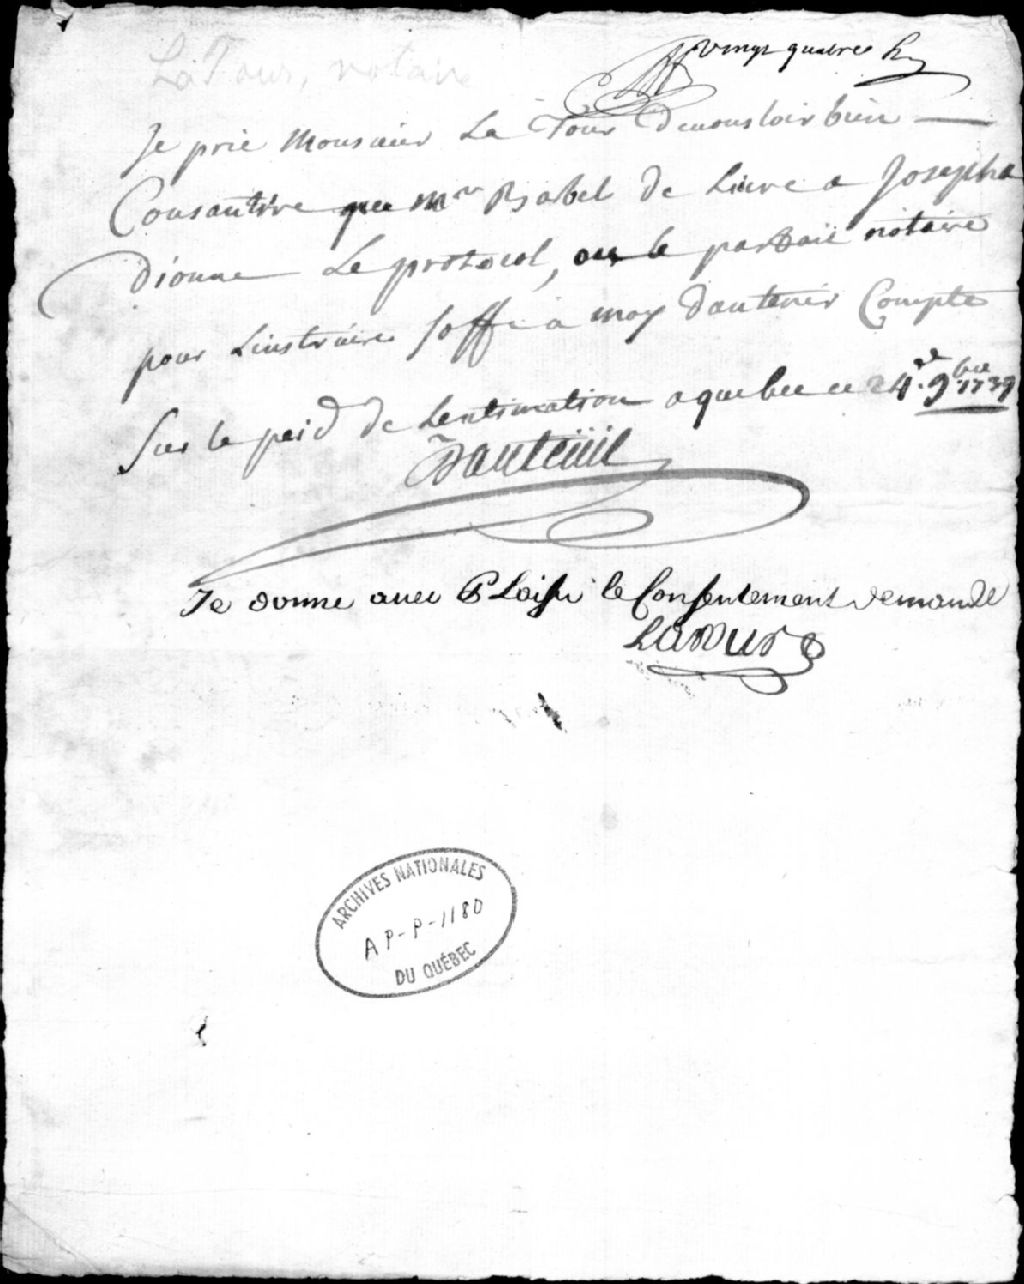 La Tour, notaire
vingt quatre
Je prie Monsieur La Tour de vousloir bien
Consantire que mr Rsabel de Livre a Joseph
dionne Le protocol, ou le parfait notaire
pour Linstruire soffre a moy d'autenir Compte
Sur le peid de Lentimation a quebec ce 24e 9bre 1739
Dauteüil
Je donne avec Plaisir le Consentement demandé
Latour
ARCHIVES NATIONALES
AP-P-1180
DU QUÉBEC